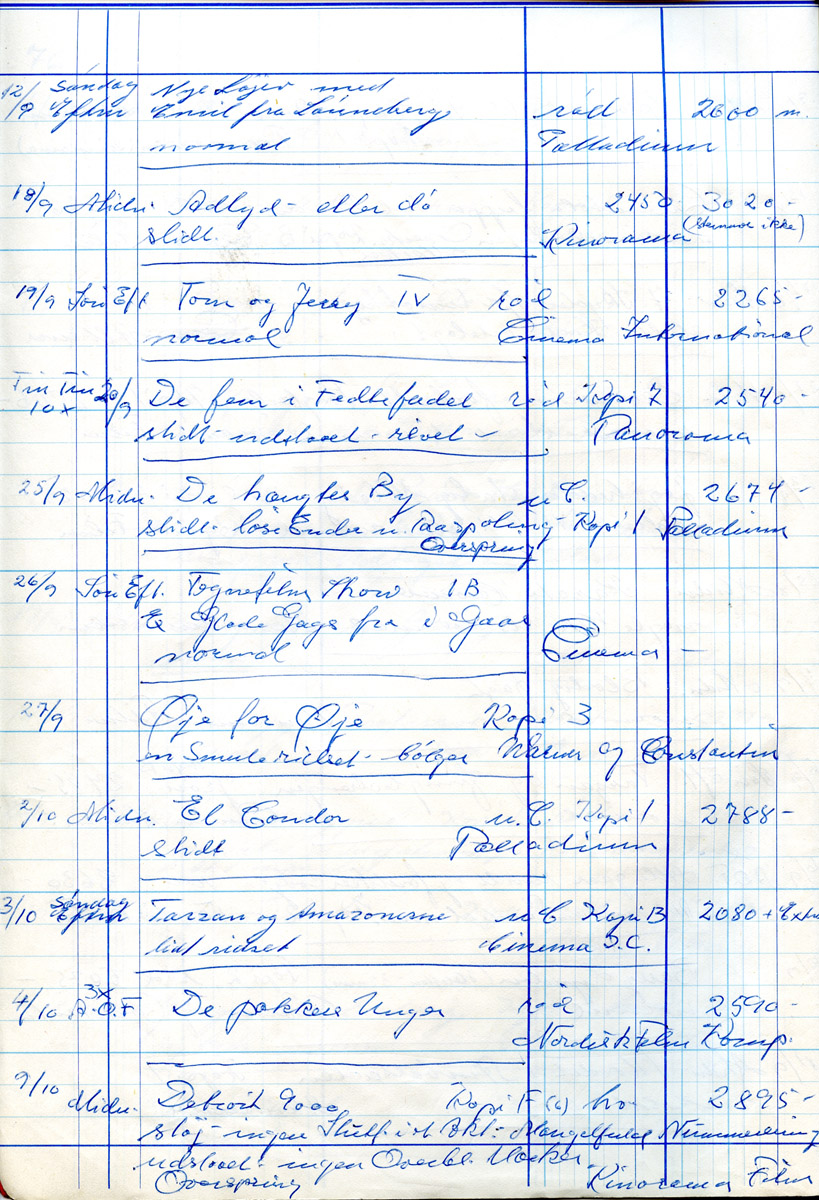 12/9 Søndag Eftm Nye Løjer med
Emil fra Lønneberg rød 2600 m.
normal Palladium
18/9 Midn. Adlyd - eller dø 2450 3020 -
slidt. Kinorama (stemmer ikke)
19/9 Søn Eft Tom og Jerry IV rød 2265 -
normal Cinema International
20/9 De fem i Fedtefadet rød Kopi 7 2540 -
10 x slidt - udslaaet - revet - Panorama
25/9 Midn. De hængtes By u.C. 2674 -
slidt - løse Ender u. Kopi 1 Palladium
Overspring
26/9 Søn Eft. Tegnefilm Show 1B
Glade Gags fra i Gaar
normal Cinema -
27/9 Øje for Øje Kopi 3
en Smule ridset - bølger Warner og Constantin
2/10 Midn. El Condor u.C. Kopi 1 2788 -
slidt Palladium
3/10 Søndag Eftm Tarzan og Amazonerne u C Kopi B 2080 + Extra
lidt ridset Cinema I.C.
4/10 3x A.O.F De pokkers Unger rød 2590 -
Nordisk Film Komp.
9/10 Midn. Detroit 9000 Kopi F 2895 -
støj - ingen Mangelfuld Nummerering
udslaaet - ingen Overbl. Mærker
Overspring Kinorama Film